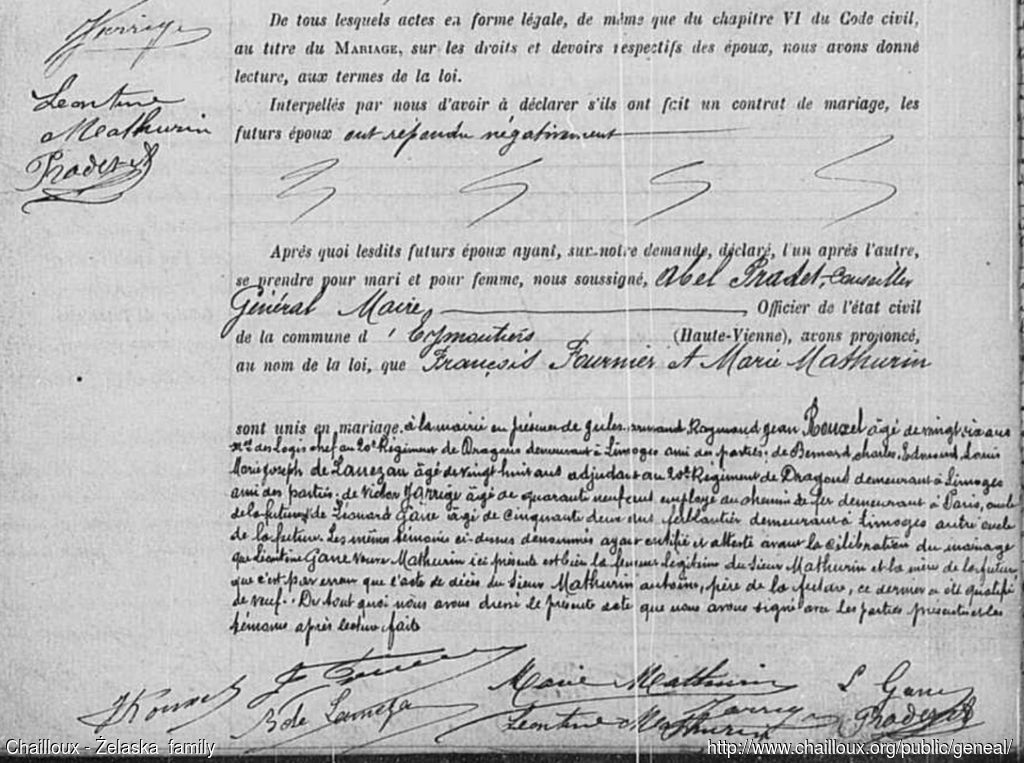 Jarrige
Leontine
Mathurin
Pradet
De tous lesquels actes en forme légale, de même que du chapitre VI du Code civil,
au titre du MARIAGE, sur les droits et devoirs respectifs des époux, nous avons donné
lecture, aux termes de la loi.
Interpellés par nous d'avoir à déclarer s'ils ont fait un contrat de mariage, les
futurs époux ont répondu négativement
Après quoi lesdits futurs époux ayant, sur notre demande, déclaré, l'un après l'autre,
se prendre pour mari et pour femme, nous soussigné, Abel Pradet, Conseiller
Général Maire, Officier de l'état civil
de la commune d'Eymoutiers (Haute-Vienne), avons prononcé,
au nom de la loi, que François Fournier et Marie Mathurin
sont unis en mariage. à la mairie en présence de Jules Armand Raymond Jean Rouxel âgé de vingt six ans
des Logis chef au 20e Régiment de Dragons demeurant à Limoges ami des parties. de Bernard, Charles, Edmond Louis
Marie Joseph de âgé de vingt huit ans adjudant au 20e Régiment de Dragons demeurant à Limoges
ami des parties. de Victor Jarrige âgé de quarante neuf ans employé au chemin de fer demeurant à Paris, oncle
de la future, de Léonard Gane âgé de cinquante deux ans ferblantier demeurant à Limoges autre oncle
de la future. Les mêmes témoins ci-dessus dénommés ayant certifié et attesté avant la célébration du mariage
que Léontine Gane veuve Mathurin ici présente est bien la femme légitime du Sieur Mathurin et la mère de la future
que c'est par erreur que l'acte de décès du Sieur Mathurin antoine, père de la future, ce dernier a été qualifié
de veuf. De tout quoi nous avons dressé le présent acte que nous avons signé avec les parties présentes et les
témoins après lecture faite
Marie Mathurin L Gane
B de Jarrige Pradet
Leontine Mathurin
Chailloux - Żelaska family http://www.chailloux.org/public/geneal/